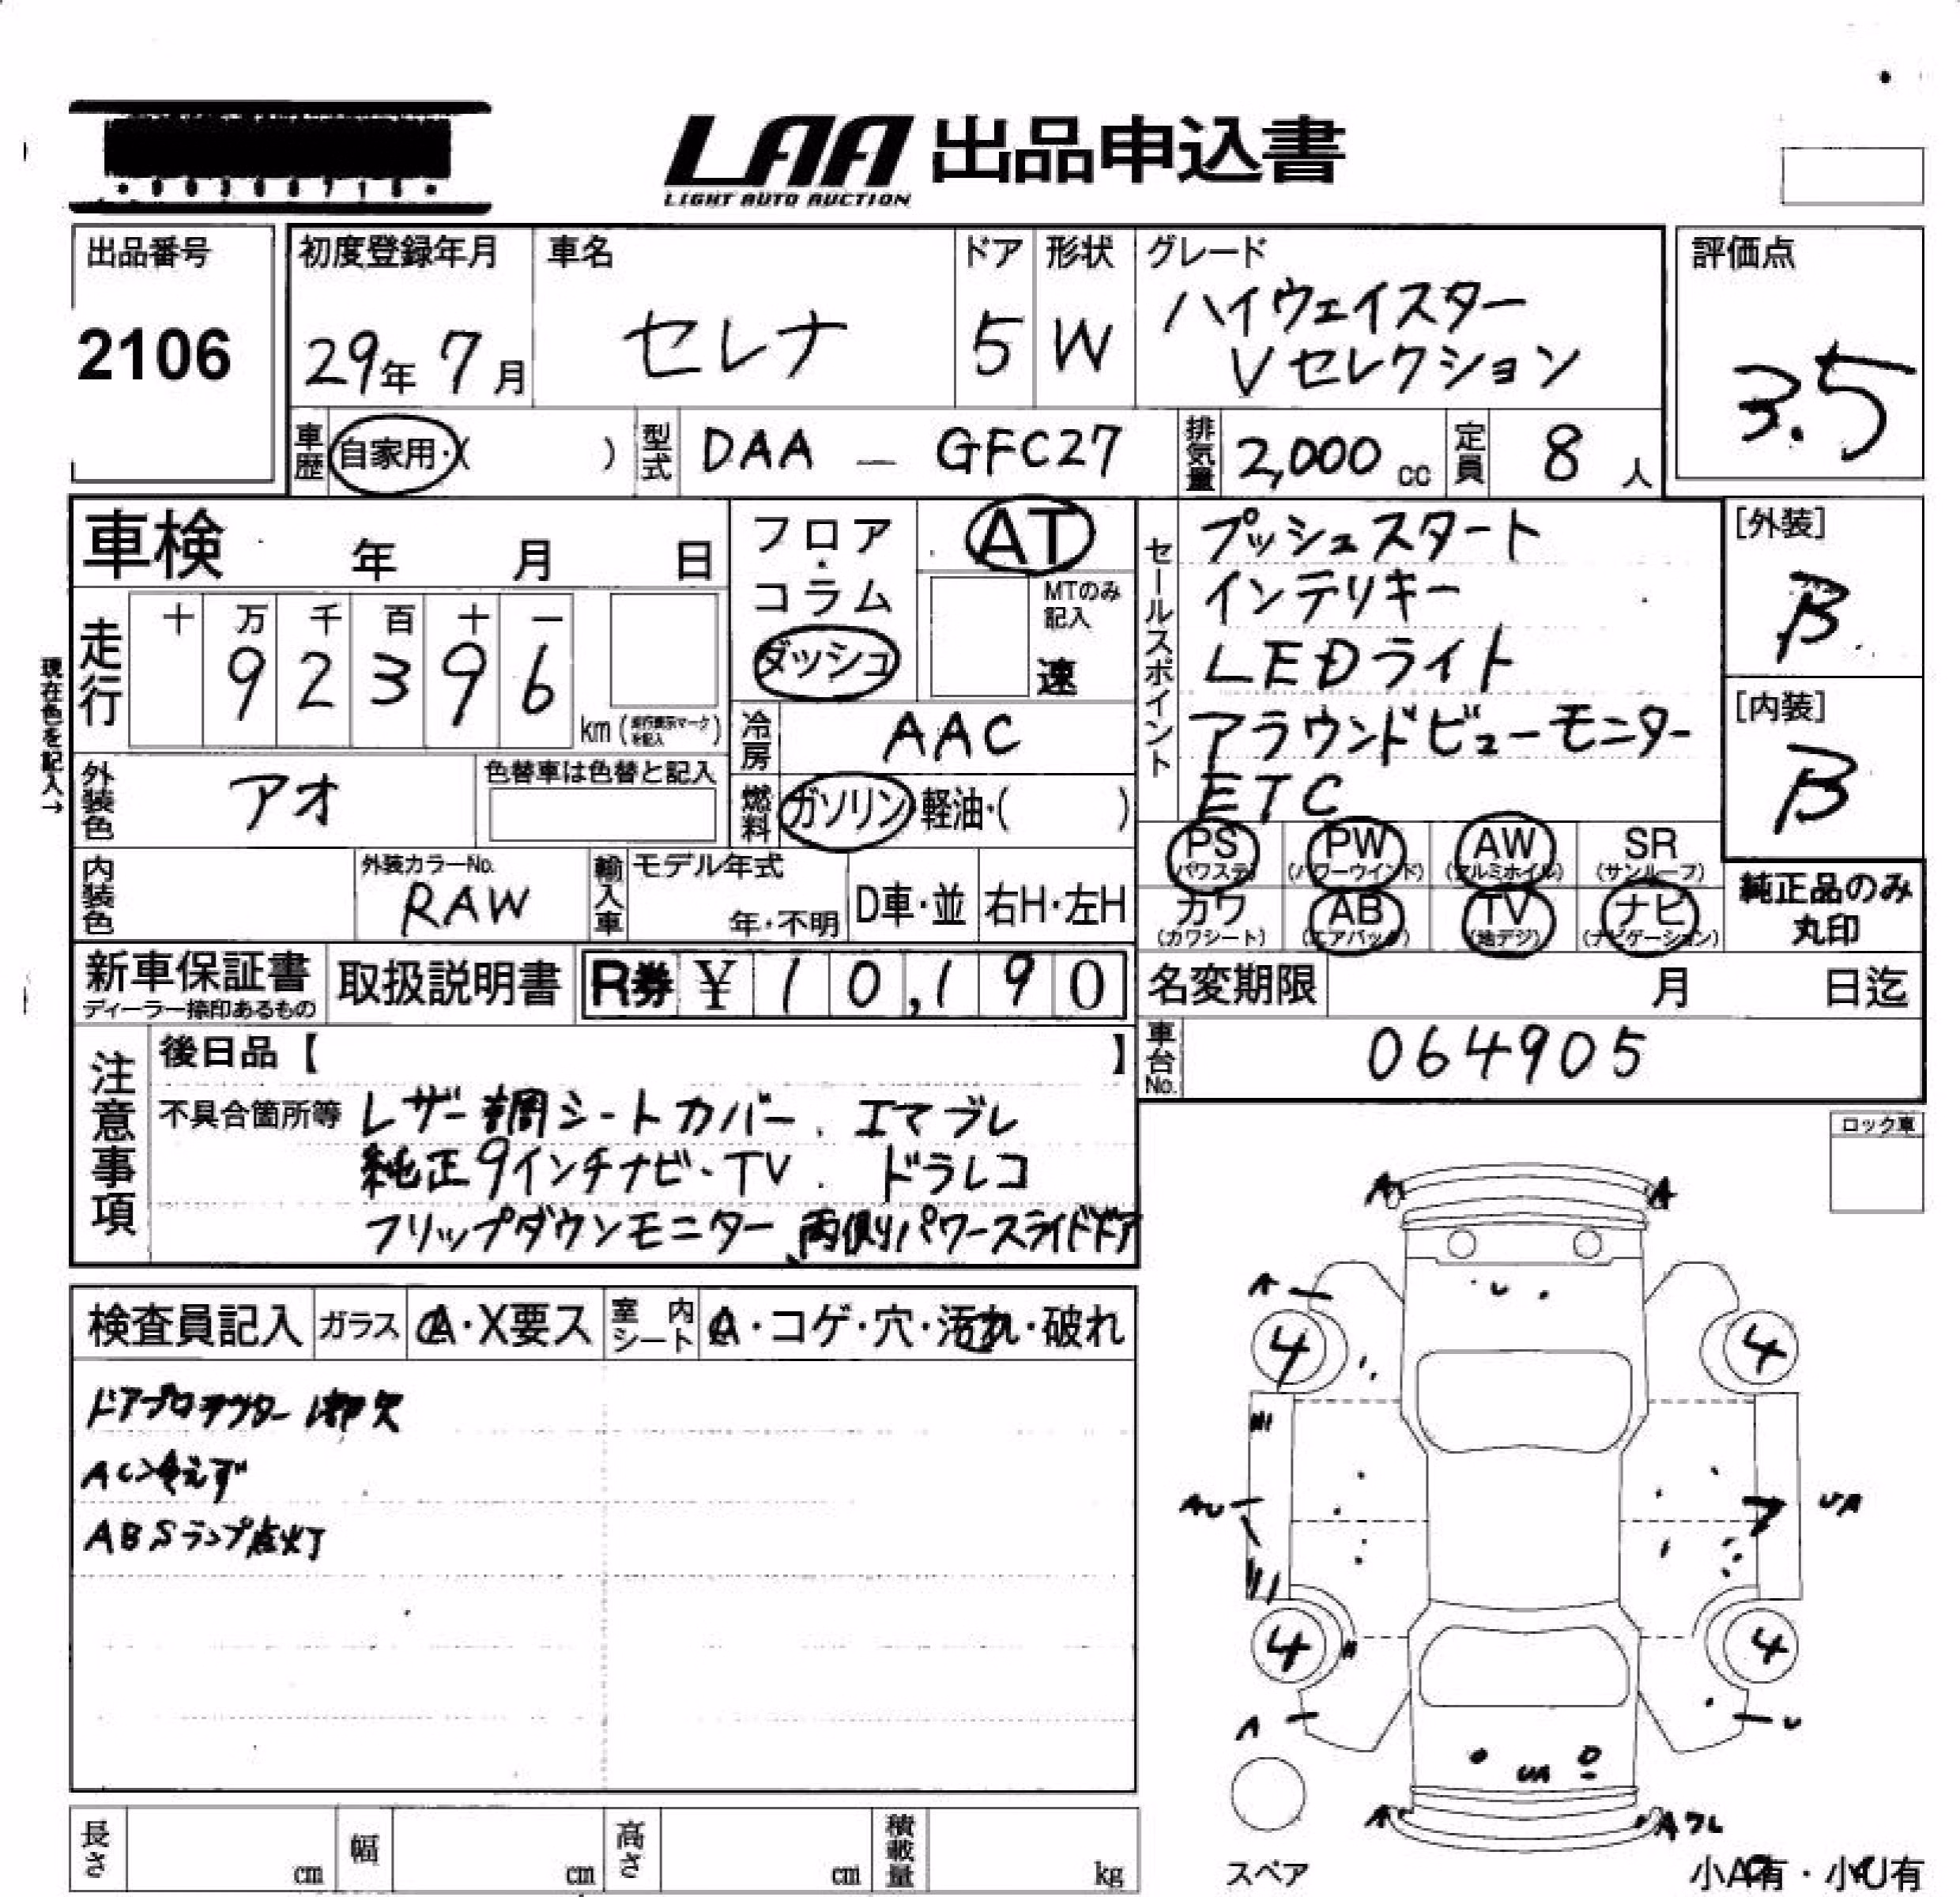 LAA 出品申込書
LIGHT AUTO AUCTION
出品番号
2106
初度登録年月
29年 7月
車名
セレナ
ドア
5
形状
W
グレード
ハイウェイスター
Vセレクション
評価点
3.5
車歴
自家用・( )
型式
DAA - GFC27
排気量
2,000 cc
定員
8 人
車検 年 月 日
フロア・コラム
ダッシュ
AT
MTのみ記入
速
セールスポイント
プッシュスタート
インテリキー
LEDライト
アラウンドビューモニター
ETC
[外装]
B
[内装]
B
現在色を記入→
走行
十 万 千 百 十 一
9 2 3 9 6
km (走行表示マークを記入)
冷房
AAC
外装色
アオ
色替車は色替と記入
燃料
ガソリン・軽油・( )
PS (パワステ)
PW (パワーウインド)
AW (アルミホイル)
SR (サンルーフ)
カワ (カワシート)
AB (エアバック)
TV (地デジ)
ナビ (ナビゲーション)
純正品のみ
丸印
内装色
外装カラーNo.
RAW
輸入車
モデル年式
年・不明
D車・並
右H・左H
新車保証書
ディーラー捺印あるもの
取扱説明書
R券 ¥ 10,190
名変期限 月 日迄
車台No.
064905
注意事項
後日品【 】
不具合箇所等 レザー調シートカバー. エマブレ
純正9インチナビ・TV. ドラレコ
フリップダウンモニター、両側パワースライドドア
ロック車
検査員記入
ガラス
A・X要ス
室内シート
A・コゲ・穴・汚れ・破れ
ドアプロテクター1部欠
AC冷えず
ABSランプ点灯
A A
A
4 4
AU UA
4 4
A U
A A ワレ
スペア
小A有・小U有
長さ cm
幅 cm
高さ cm
積載量 kg